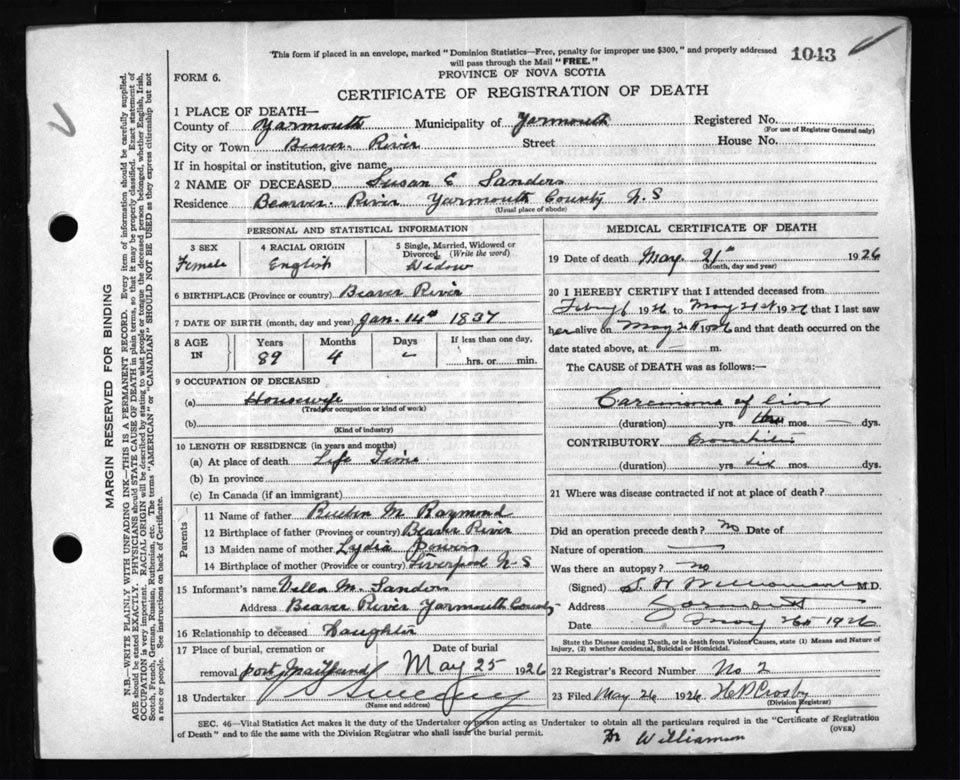 This form if placed in an envelope, marked "Dominion Statistics—Free, penalty for improper use $300," and properly addressed
will pass through the Mail "FREE."
1043
FORM 6.
PROVINCE OF NOVA SCOTIA
CERTIFICATE OF REGISTRATION OF DEATH
1 PLACE OF DEATH—
County of Yarmouth Municipality of Yarmouth Registered No.
(For use of Registrar General only)
City or Town Beaver River Street House No.
If in hospital or institution, give name
2 NAME OF DECEASED Susan E Sanders
Residence Beaver River Yarmouth County N.S
(Usual place of abode)
PERSONAL AND STATISTICAL INFORMATION
3 SEX 4 RACIAL ORIGIN 5 Single, Married, Widowed or
Divorced (Write the word)
Female English Widow
6 BIRTHPLACE (Province or country) Beaver River
7 DATE OF BIRTH (month, day and year) Jan. 14th 1837
8 AGE IN Years Months Days If less than one day,
89 4 – hrs. or min.
9 OCCUPATION OF DECEASED
(a) Housewife
(Trade, occupation or kind of work)
(b)
(Kind of industry)
10 LENGTH OF RESIDENCE (in years and months)
(a) At place of death Life Time
(b) In province
(c) In Canada (if an immigrant)
Parents
11 Name of father M Raymond
12 Birthplace of father (Province or country) Beaver River
13 Maiden name of mother Lydia Powers
14 Birthplace of mother (Province or country) Liverpool N.S
15 Informant's name M. Sanders
Address Beaver River Yarmouth County
16 Relationship to deceased Daughter
17 Place of burial, cremation or Date of burial
removal Port Maitland May 25 1926
18 Undertaker Sweeny
(Name and address)
MEDICAL CERTIFICATE OF DEATH
19 Date of death May 21st 1926
(Month, day and year)
20 I HEREBY CERTIFY that I attended deceased from
1926 to May 21st 1926 that I last saw
her alive on May 1926 and that death occurred on
date stated above, at – m.
The CAUSE of DEATH was as follows:—
Carcinoma of liver
(duration) yrs. mos. – dys.
CONTRIBUTORY Bronchitis
(duration) yrs. six mos. dys.
21 Where was disease contracted if not at place of death?
Did an operation precede death? No Date of
Nature of operation –
Was there an autopsy? No
(Signed) Williamson M.D.
Address Yarmouth
Date May 26 1926
State the Disease causing Death, or in death from Violent Causes, state (1) Means and Nature of
Injury, (2) whether Accidental, Suicidal or Homicidal.
22 Registrar's Record Number No. 2
23 Filed May 26 1926 H P Crosby
(Division Registrar)
SEC. 46—Vital Statistics Act makes it the duty of the Undertaker or person acting as Undertaker to obtain all the particulars required in the "Certificate of Registration
of Death" and to file the same with the Division Registrar who shall issue the burial permit.
(OVER)
Dr Williamson
MARGIN RESERVED FOR BINDING
N.B.—WRITE PLAINLY WITH UNFADING INK—THIS IS A PERMANENT RECORD. Every item of information should be carefully supplied.
AGE should be stated EXACTLY. PHYSICIANS should STATE CAUSE OF DEATH in plain terms, so that it may be properly classified. Exact statement of
OCCUPATION is very important. RACIAL ORIGIN will be described by stating to what people or tongue the deceased person belonged, whether English, Irish,
Scotch, French, German, Russian, Ruthenian, etc. The terms "AMERICAN" or "CANADIAN" SHOULD NOT BE USED as they express citizenship but not
a race or people. See instructions on back of Certificate.